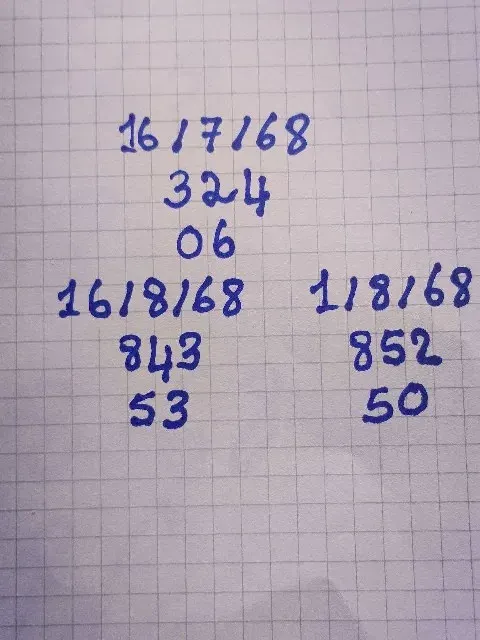 16/7/68
324
06
16/8/68 1/8/68
843 852
53 50